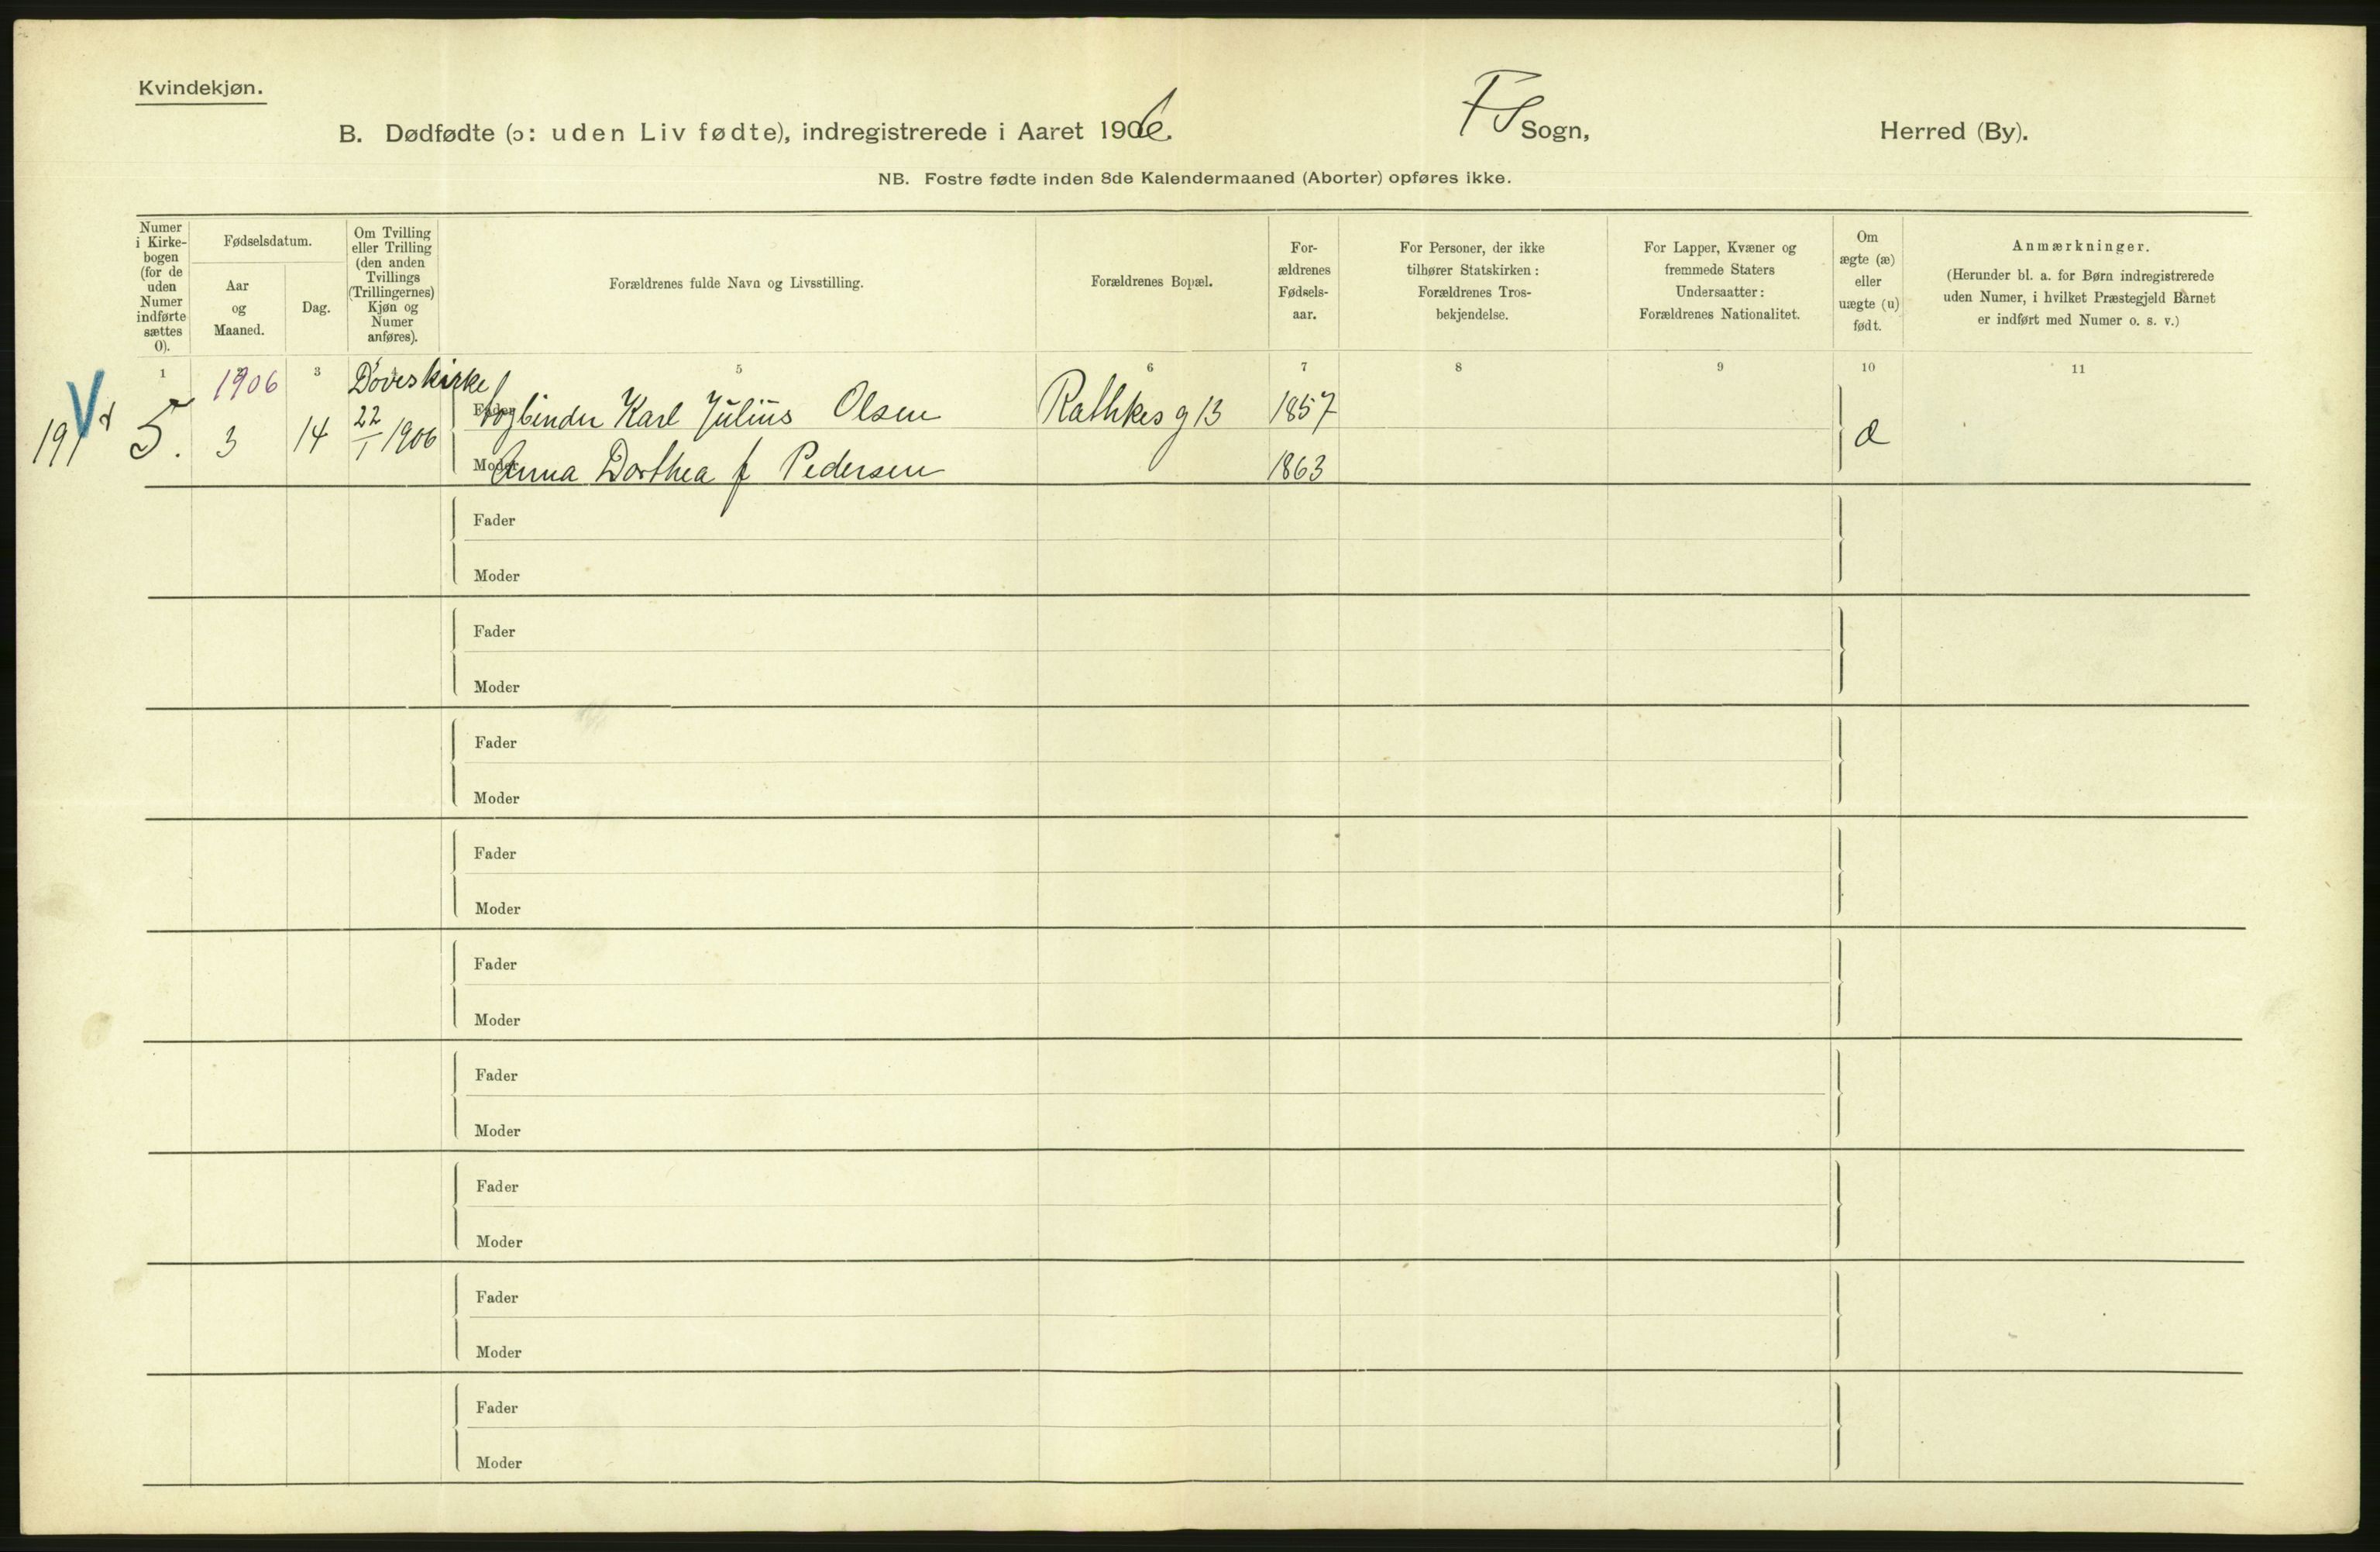 Kvindekjøn.
B. Dødfødte (ɔ: uden Liv fødte), indregistrerede i Aaret 1906.
FS Sogn,
Herred (By).
NB. Fostre fødte inden 8de Kalendermaaned (Aborter) opføres ikke.
Numer
i Kirke-
bogen
(for de
uden
Numer
indførte
sættes
0).
Fødselsdatum.
Aar
og
Maaned.
Dag.
Om Tvilling
eller Trilling
(den anden
Tvillings
(Trillingernes)
Kjøn og
Numer
anføres).
Forældrenes fulde Navn og Livsstilling.
Forældrenes Bopæl.
For-
ældrenes
Fødsels-
aar.
For Personer, der ikke
tilhører Statskirken:
Forældrenes Tros-
bekjendelse.
For Lapper, Kvæner og
fremmede Staters
Undersaatter:
Forældrenes Nationalitet.
Om
ægte (æ)
eller
uægte (u)
født.
Anmærkninger.
(Herunder bl. a. for Børn indregistrerede
uden Numer, i hvilket Præstegjeld Barnet
er indført med Numer o. s. v.)
1 3 5 6 7 8 9 10 11
1906 Døveskirke
Fader Bogbinder Karl Julius Olsen Rathkes g 13 1857
5. 3 14 22/1 1906 æ
Moder Anna Dorthea f Pedersen 1863
Fader
Moder
Fader
Moder
Fader
Moder
Fader
Moder
Fader
Moder
Fader
Moder
Fader
Moder
Fader
Moder
Fader
Moder